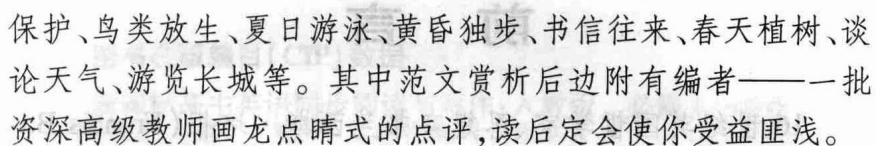 保护、鸟类放生、夏日游泳、黄昏独步、书信往来、春天植树、谈
论天气、游览长城等。其中范文赏析后边附有编者——一批
资深高级教师画龙点睛式的点评,读后定会使你受益匪浅。